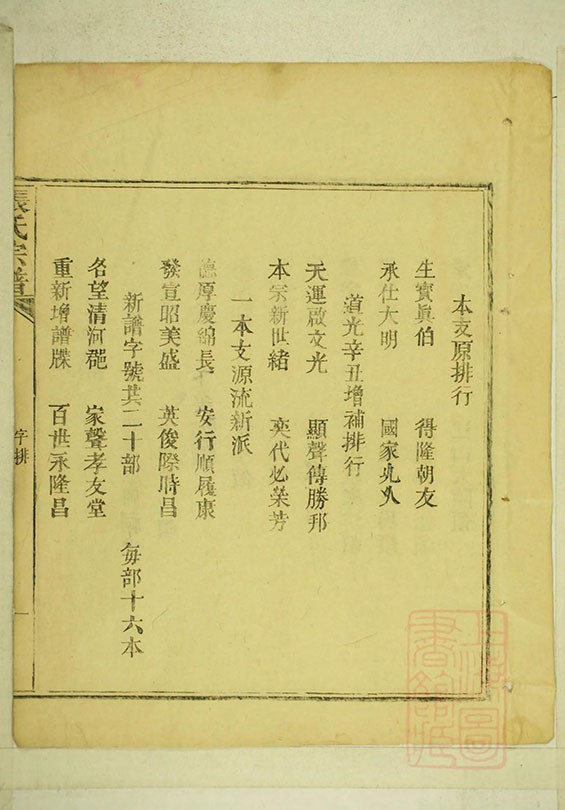 本支原排行
生實眞伯 得隆朝友
承仕大明 國家九久
道光辛丑增補排行
天運啟文光 顯聲傳勝邦
本宗新世緒 奕代必荣芳
一本支源流新派
德厚慶綿長 安行順履康
發宣昭美盛 英俊際時昌
新譜字號共二十部 每部十六本
名望清河郡 家聲孝友堂
重新增譜牒 百世永隆昌
張氏宗譜
字排
一
上海圖
書館藏